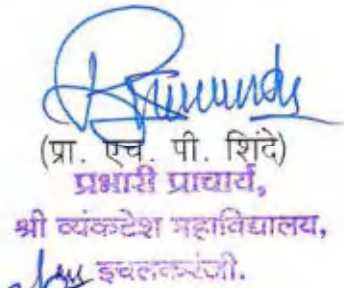 (प्रा. एच. पी. शिंदे)
प्रभारी प्राचार्य,
श्री व्यंकटेश महाविद्यालय,
इचलकरंजी.